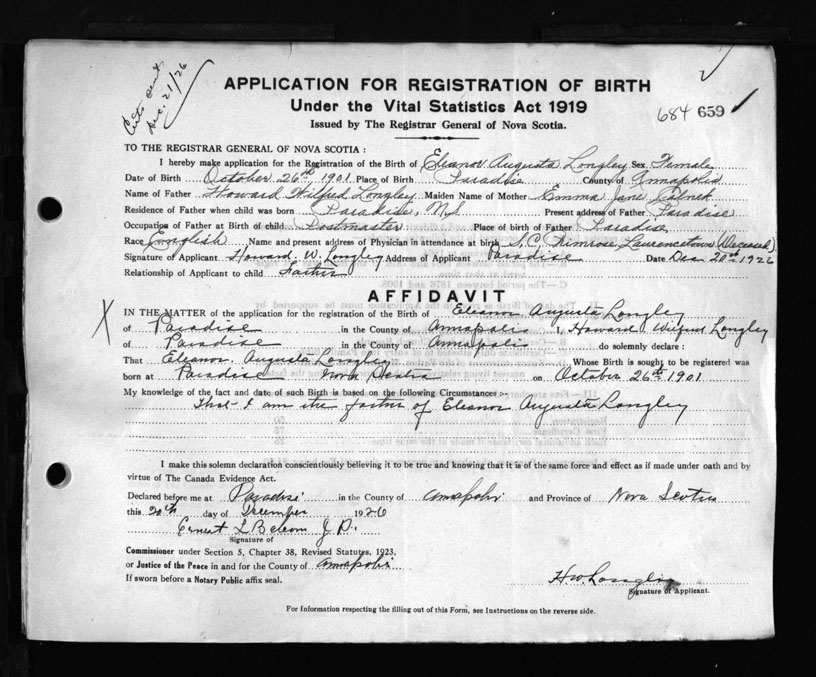 Certs sent
Dec. 21/26
APPLICATION FOR REGISTRATION OF BIRTH
Under the Vital Statistics Act 1919
684 659
Issued by The Registrar General of Nova Scotia.
TO THE REGISTRAR GENERAL OF NOVA SCOTIA :
I hereby make application for the Registration of the Birth of Eleanor Augusta Longley Sex Female
Date of Birth October 26th, 1901 Place of Birth Paradise County of Annapolis
Name of Father Howard Wilfred Longley Maiden Name of Mother Emma Jane
Residence of Father when child was born Paradise, N.S. Present address of Father Paradise
Occupation of Father at Birth of child Postmaster Place of birth of Father Paradise
Race English Name and present address of Physician in attendance at birth S.C. Primrose Laurencetown (Deceased)
Signature of Applicant Howard. W. Longley Address of Applicant Paradise Date Dec 20th 1926
Relationship of Applicant to child Father
AFFIDAVIT
X
IN THE MATTER of the application for the registration of the Birth of Eleanor Augusta Longley
of Paradise in the County of Annapolis I, Howard Wilfred Longley
of Paradise in the County of Annapolis do solemnly declare :
That Eleanor Augusta Longley Whose Birth is sought to be registered was
born at Paradise Nova Scotia on October 26th 1901
My knowledge of the fact and date of such Birth is based on the following Circumstances :-
That I am the father of Eleanor Augusta Longley
I make this solemn declaration conscientiously believing it to be true and knowing that it is of the same force and effect as if made under oath and by
virtue of The Canada Evidence Act.
Declared before me at Paradise in the County of Annapolis and Province of Nova Scotia
this 20th day of December 1926
Ernest L Balcom J.P.
Signature of
Commissioner under Section 5, Chapter 38, Revised Statutes, 1923.
or Justice of the Peace in and for the County of Annapolis
If sworn before a Notary Public affix seal.
H W Longley
Signature of Applicant.
For Information respecting the filling out of this Form, see Instructions on the reverse side.